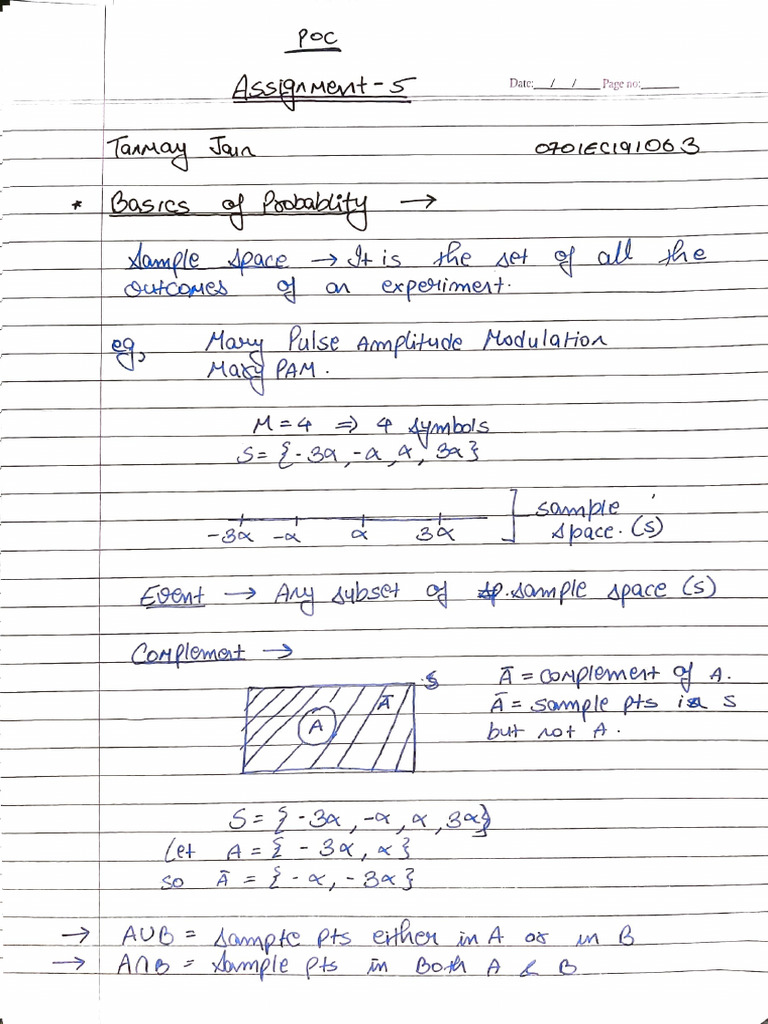 POC
Assignment-5
Date: / / Page no:
Tanmay Jain 0701EC191063
* Basics of Probablity →
Sample space → It is the set of all the
outcomes of an experiment.
eg, Mary Pulse Amplitude Modulation
Mary PAM.
M=4 ⇒ 4 symbols
S= {-3α, -α, α, 3α}
-3α -α α 3α sample
space. (S)
Event → Any subset of sample space (S)
Complement →
S
A Ā
Ā = complement of A.
Ā = sample pts in S
but not A.
S= {-3α, -α, α, 3α}
Let A = {-3α, α}
so Ā = {-α, -3α}
→ A∪B = sample pts either in A or in B
→ A∩B = sample pts in Both A & B